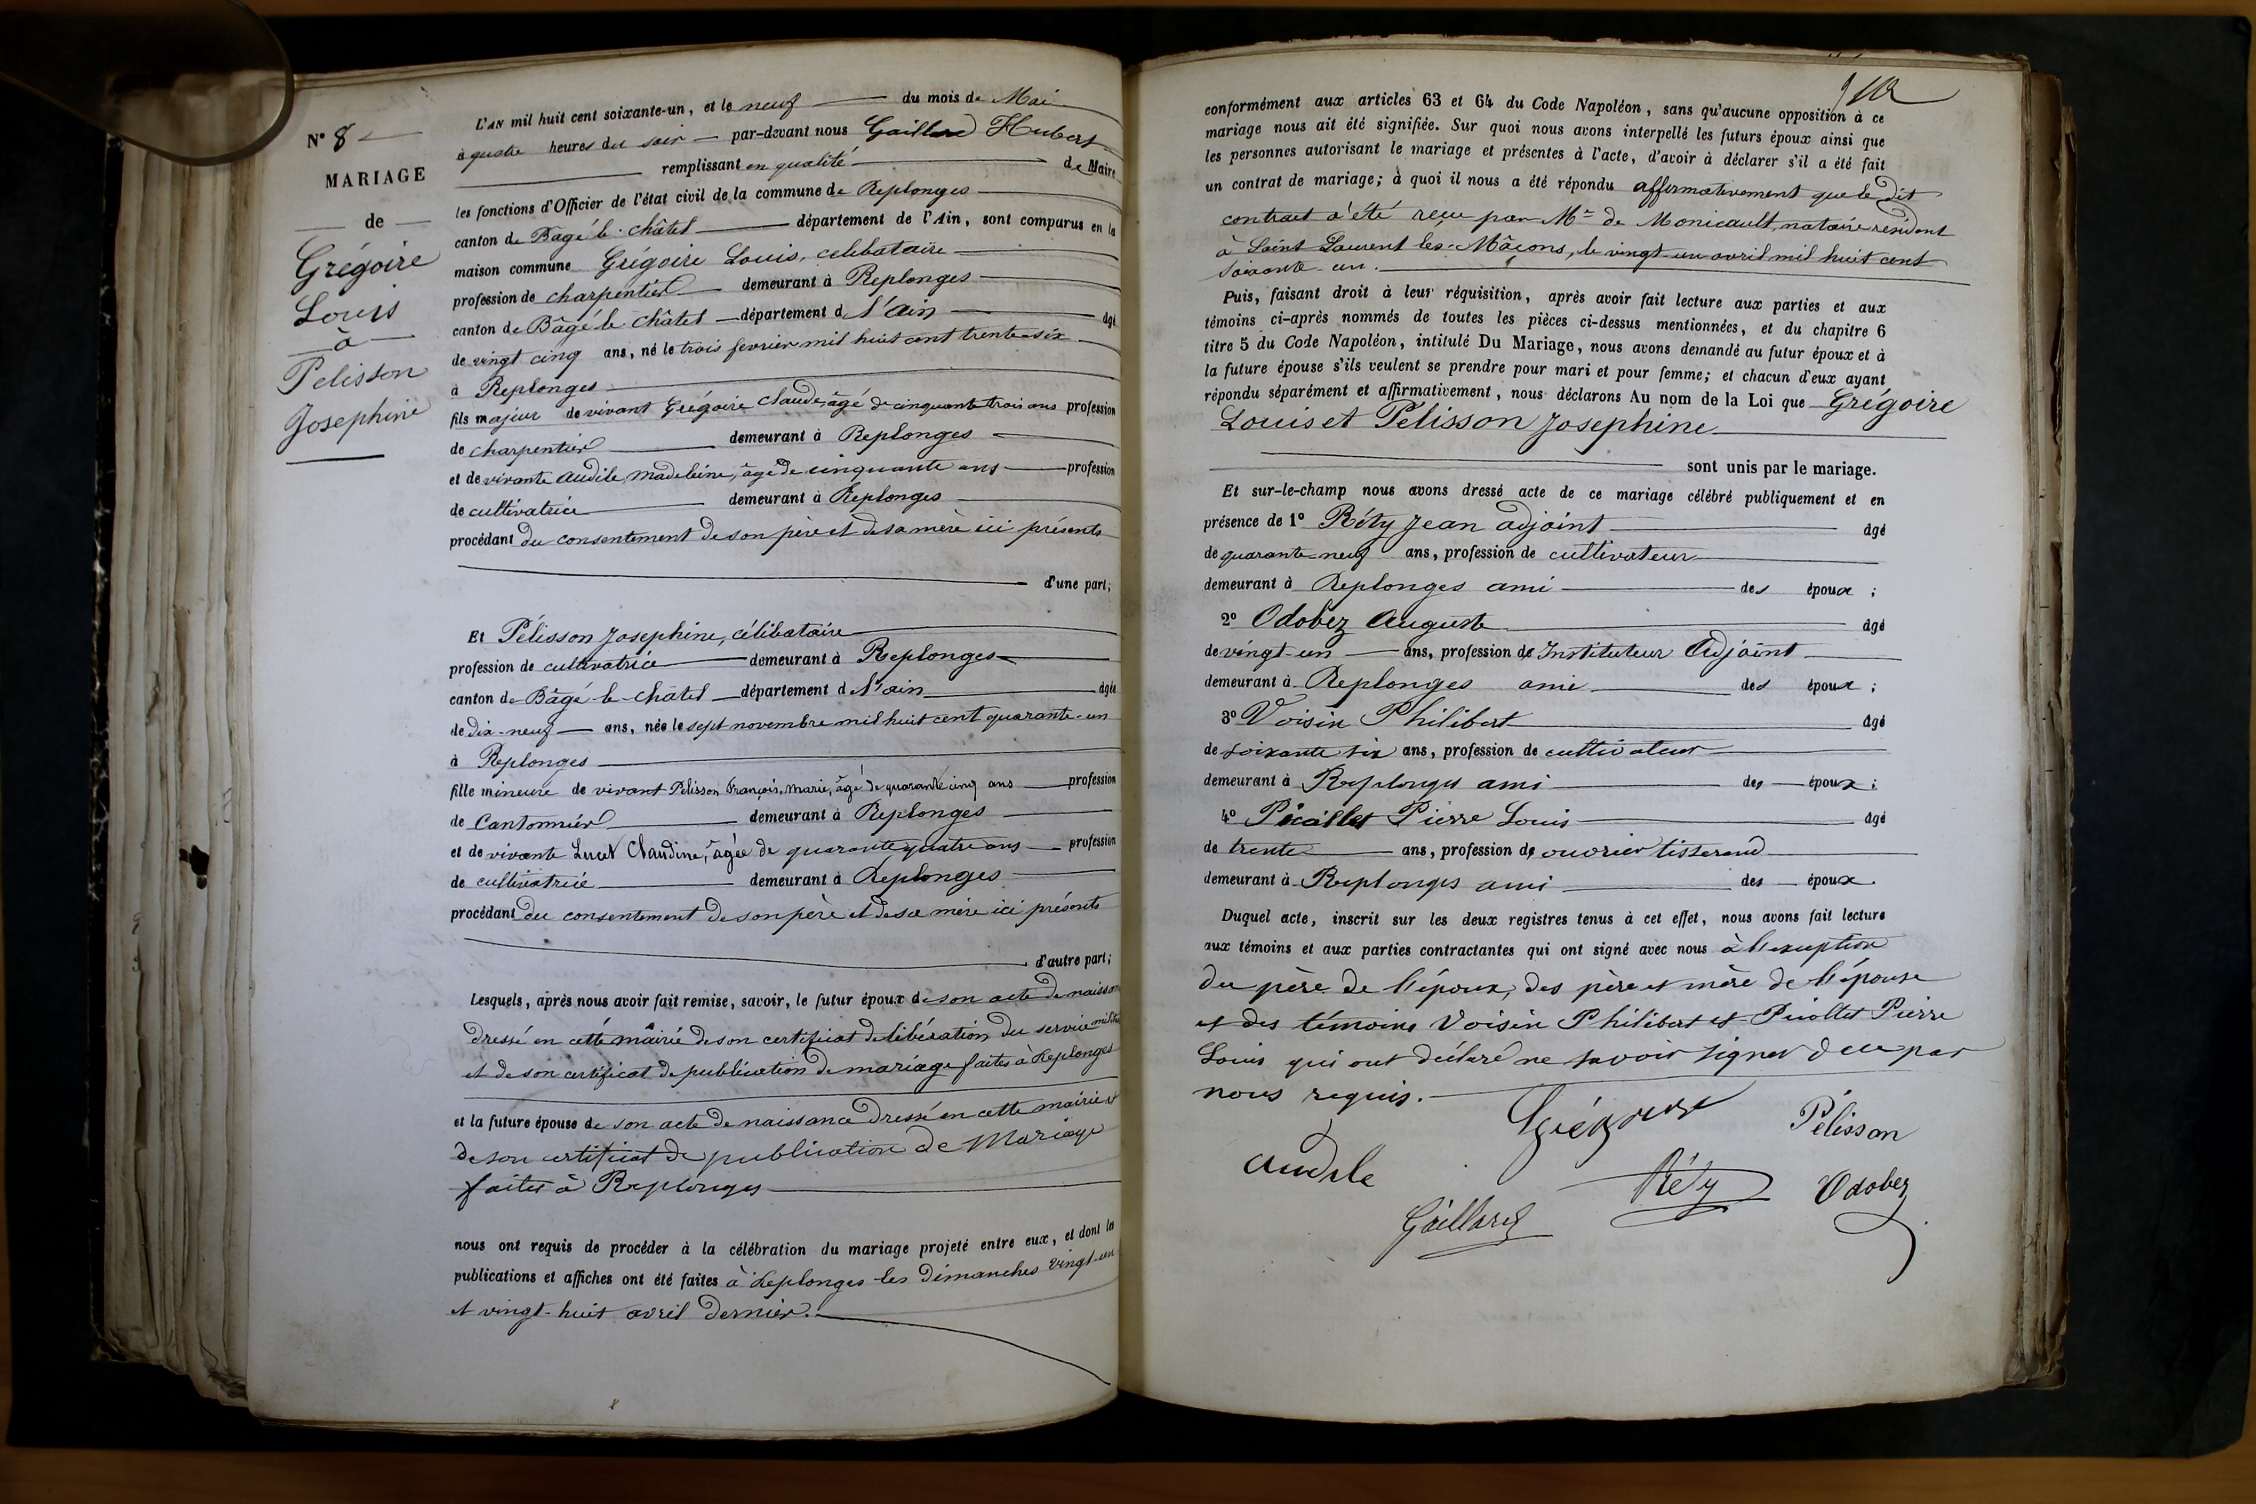 N° 8
MARIAGE
de
Grégoire
Louis
à
Pelisson
Josephine
L'AN mil huit cent soixante-un, et le neuf du mois de Mai
à quatre heures du soir par-devant nous Gaillard Hubert
remplissant en qualité de Maire
les fonctions d'Officier de l'état civil de la commune de Replonges
canton de Bâgé-le-châtel département de l'Ain, sont comparus en la
maison commune Grégoire Louis, celibataire
profession de charpentier demeurant à Replonges
canton de Bâgé le Châtel département d l'ain âgé
de vingt cinq ans, né le trois fevrier mil huit cent trente-six
à Replonges
fils majeur de vivant Grégoire Claude, âgé de cinquante trois ans profession
de charpentier demeurant à Replonges
et de vivante Audile, Madeleine, âgé de cinquante ans profession
de cultivatrice demeurant à Replonges
procédant du consentement de son père et de sa mère ici présents
d'une part;
Et Pélisson Josephine, célibataire
profession de cultivatrice demeurant à Replonges
canton de Bâgé-le-châtel département d l'ain âgée
de dix-neuf ans, née le sept novembre mil huit cent quarante-un
à Replonges
fille mineure de vivant Pélisson François, Marie, âgé de quarante cinq ans profession
de Cantonnier demeurant à Replonges
et de vivante Lucet Claudine, âgée de quarante quatre ans profession
de cultivatrice demeurant à Replonges
procédant du consentement de son père et de sa mère ici présents
d'autre part;
Lesquels, après nous avoir fait remise, savoir, le futur époux de son acte de naissan
dressé en cette mairie de son certificat de libération du service
et de son certificat de publication de mariage faites à Replonges
et la future épouse de son acte de naissance dressé en cette mairie et
de son certificat de publication de Mariage
faites à Replonges
nous ont requis de procéder à la célébration du mariage projeté entre eux, et dont les
publications et affiches ont été faites à Replonges les Dimanches vingt-un
et vingt-huit avril dernier.
conformément aux articles 63 et 64 du Code Napoléon, sans qu'aucune opposition à ce
mariage nous ait été signifiée. Sur quoi nous avons interpellé les futurs époux ainsi que
les personnes autorisant le mariage et présentes à l'acte, d'avoir à déclarer s'il a été fait
un contrat de mariage; à quoi il nous a été répondu affirmativement que le dit
contract a été reçu par Me de Monicault, notaire résidant
à Saint Laurent les-Mâcons, le vingt-un avril mil huit cent
soixante-un.
Puis, faisant droit à leur réquisition, après avoir fait lecture aux parties et aux
témoins ci-après nommés de toutes les pièces ci-dessus mentionnées, et du chapitre 6
titre 5 du Code Napoléon, intitulé Du Mariage, nous avons demandé au futur époux et à
la future épouse s'ils veulent se prendre pour mari et pour femme; et chacun d'eux ayant
répondu séparément et affirmativement, nous déclarons Au nom de la Loi que Grégoire
Louis et Pélisson Josephine
sont unis par le mariage.
Et sur-le-champ nous avons dressé acte de ce mariage célébré publiquement et en
présence de 1° Réty Jean adjoint âgé
de quarante-neuf ans, profession de cultivateur
demeurant à Replonges ami des époux ;
2° Odobez Auguste âgé
de vingt-un ans, profession de Instituteur Adjoint
demeurant à Replonges ami des époux ;
3° Voisin Philibert âgé
de soixante six ans, profession de cultivateur
demeurant à Replonges ami des époux ;
4° Picollet Pierre Louis âgé
de trente ans, profession de ouvrier tisserand
demeurant à Replonges ami des époux.
Duquel acte, inscrit sur les deux registres tenus à cet effet, nous avons fait lecture
aux témoins et aux parties contractantes qui ont signé avec nous à l'exception
du père de l'époux, des père et mère de l'épouse
et des témoins Voisin Philibert et Picollet Pierre
Louis qui ont déclaré ne savoir signer de ce par
nous requis.
Grégoire Pélisson
Audile Réty Odobez
Gaillard